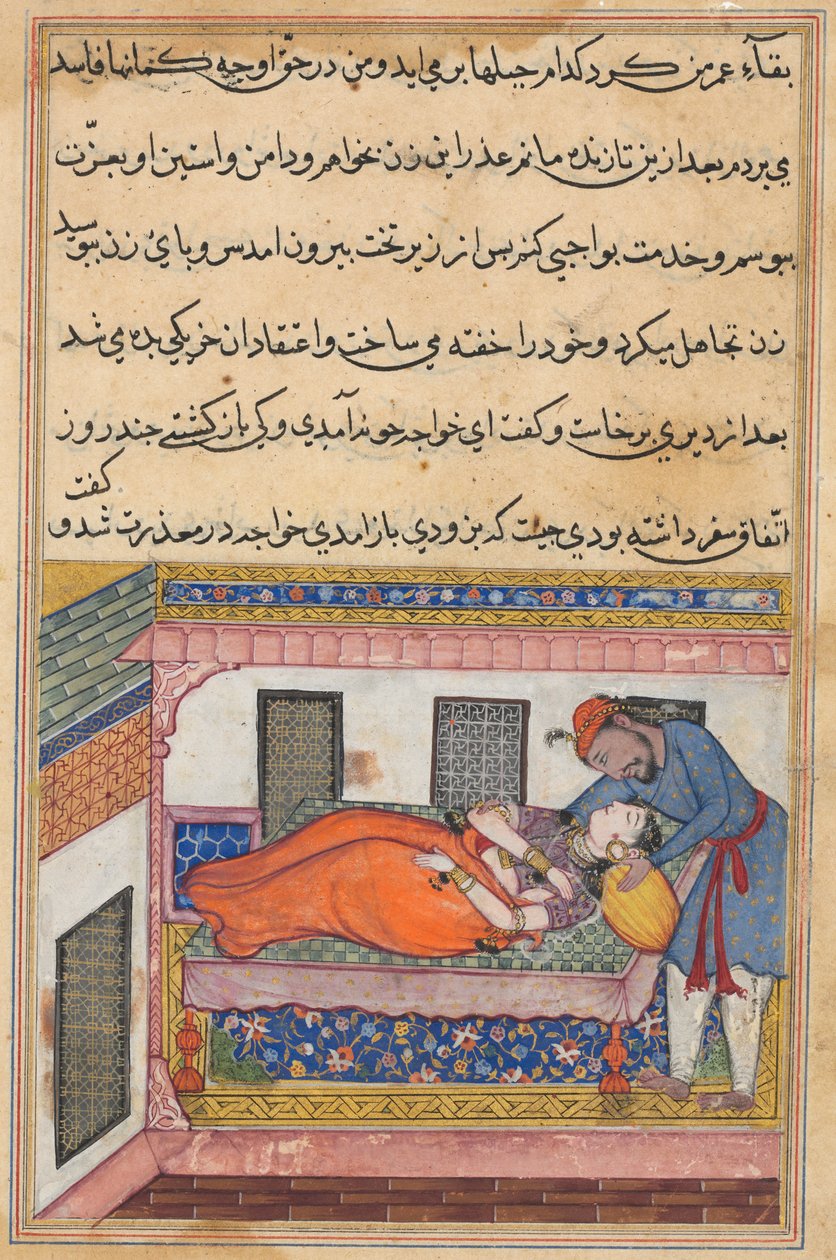 بقاء عمر من کرد کدام حیلها بر می اید و من در حق او چه کمانها فاسد
می بردم بعد ازین تا زنده مانم عذر این زن بخواهم و دامن و استین او بعزّت
ببوسم و خدمت بواجبی کنم بس از زیر تخت بیرون امد سر و بای زن ببوسید
زن تجاهل میکرد و خود را خفته می ساخت و اعتقاد ان خر یکی بده می شد
بعد از دیری برخاست و کفت ای خواجه جون آمدی و کی باز کشتی جند روز
اتّفاق سفر داشته بودی جیست که بزودی باز امدی خواجه در معذرت شد و کفت